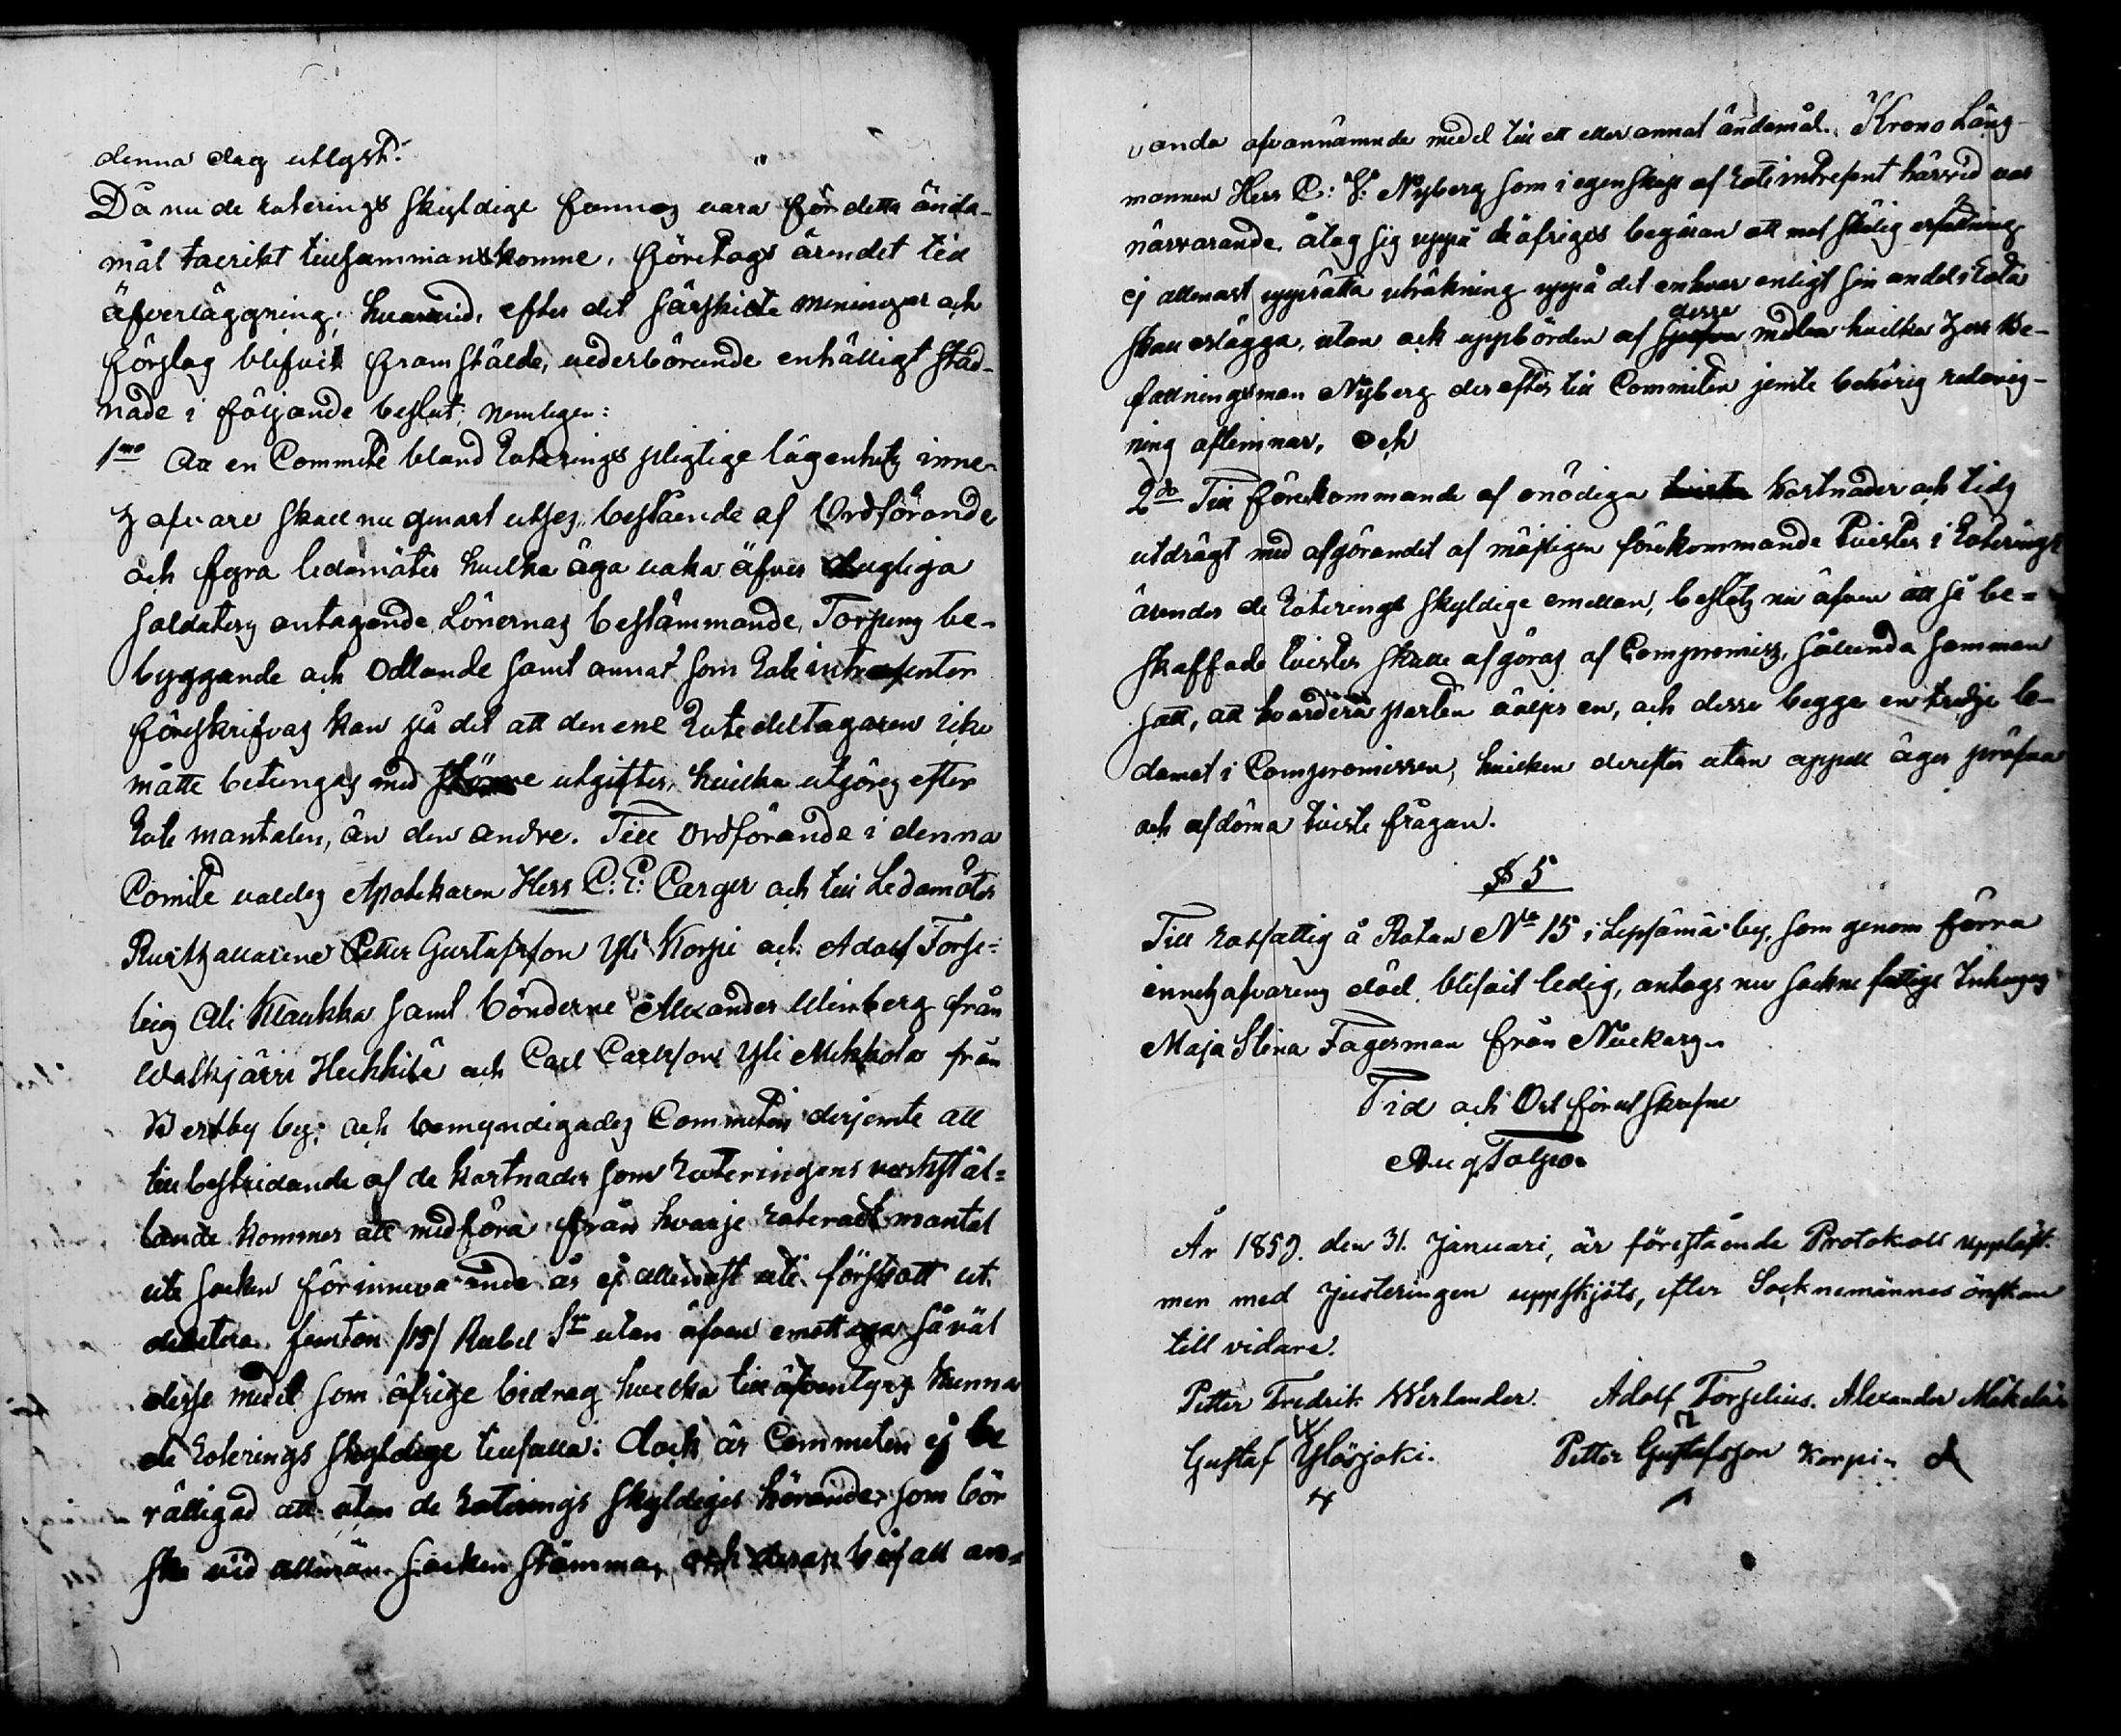 denna dag utlyst.
Då nu de roterings skyldige funnos vara för detta ända-
mål talrikt tillsammanskomne, företogs ärendet till
öfverläggning, hvarvid, efter det särskilte meningar och
förslag blifvit framstälde, vederbörande enhälligt stad-
nade i följande beslut, nemligen:
1mo Att en Committé bland roterings pligtige lägenhets inne-
hafvare skall nu genast utses, bestående af Ordförande
och fyra ledamöter hvilka äga vaka öfver dugliga
soldaters antagande, Lönernas bestämmande, Torpens be-
byggande och Odlande samt annat som Roteintressenter
föreskrifvas kan på det att den ene Rotedeltagaren icke
måtte betungas med större utgifter, hvilka utgöras efter
Rote mantalen, än den andre. Till Ordförande i denna
Comité valdes Apothekaren Herr C: E: Carger och till Ledamöter
Rusthållarene Petter Gustafsson Yli Korpi och Adolf Forse-
lius Ali Klaukka samt bönderne Alexander Weinberg från
Walkjärvi Heikkilä och Carl Carlsson Yli Mikkola från
Pertby by; och bemyndigades Committén derjemte att
till bestridande af de kostnader som Roteringens verkstäl-
lande kommer att medföra från hvarje roteradt mantal
ute socken för innevarande år ej allenast uti förskott ut
debitera femton /15/ Rubel Sr utan äfven emottaga såväl
desse medel som öfrige bidrag hvilka till äfventyrs kunna
de Roterings skyldige tillfalla: dock är Committén ej be
rättigad att utan de roterings skyldiges hörande, som bör
ske vid allmän sockenstämma, och deras bifall an-
vända ofvannämnde medel till ett eller annat ändamål. Krono Läns-
mannen Herr C: F: Nyberg som i egenskap af Roteintressent härvid var
närvarande, åtog sig uppå de öfriges begäran att mot skälig ersättning
ej allenast upprätta uträkning uppå det enhvar enligt sin andel i Rota
skall erlägga, utan ock uppbörden af desse medlen hvilka Herr Be-
fallningsman Nyberg derefter till Committén jemte behörig redovis-
ning aflemnar, Och
2do Till förekommande af onödiga kostnader och tids
utdrägt med afgörandet af möjligen förekommande tvister i Roterings
ärender de Roterings skyldige emellan, beslöts nu äfven att så be-
skaffade tvister skulle afgöras af Compromiss, sålunda samman
satt, att hvardera parten väljer en, och desse begge en tredje le-
damot i Compromissen, hvilken derefter utan appell äger pröfva
och afdöma tviste frågan.
§ 5
Till rotfattig å Rotan No 15 i Lepsämä by, som genom förra
innehafvarens död blifvit ledig, antogs nu sockne fattige Inhyses
Maja Stina Fagerman från Nuckars.
Tid och Ort förutskrefne
Aug. Tolpo.
År 1859. den 31. Januari, är förestående Protokoll uppläst.
men med justeringen uppskjöts, efter Socknemännes önskan
till vidare.
Petter Fredrik Werlander. Adolf Forselius. Alexander Mäkelä
Gustaf Ylösjoki. Petter Gustafsson Korpi.